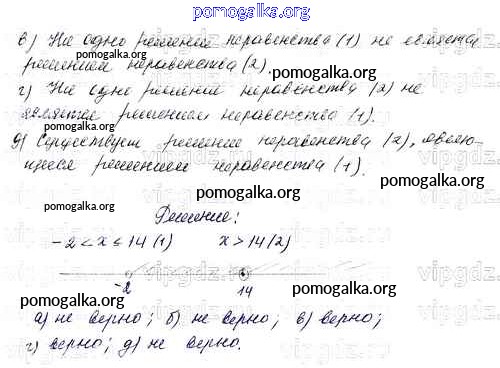 pomogalka.org
в) Ни одно решение неравенства (1) не является
решением неравенства (2).
pomogalka.org
г) Ни одно решение неравенства (2) не
является решением неравенства (1).
pomogalka.org
д) Существует решение неравенства (2), являю-
щееся решением неравенства (1).
pomogalka.org
pomogalka.org
pomogalka.org
Решение:
-2 < x ≤ 14 (1) x > 14 (2)
-2 14
pomogalka.org
pomogalka.org
а) не верно; б) не верно; в) верно;
г) верно; д) не верно.
pomogalka.org